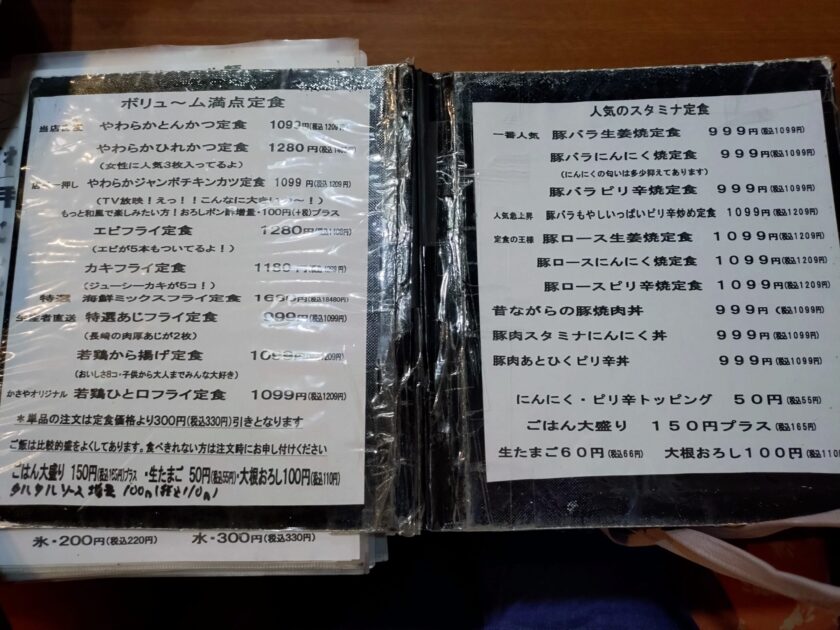 ボリュ〜ム満点定食
やわらかとんかつ定食 1099円(税込1209円)
やわらかひれかつ定食 1280円
(女性に人気3枚入ってるよ)
一押し やわらかジャンボチキンカツ定食 1099円(税込1209円)
(TV放映!えっ!!こんなに大きいの〜!)
もっと和風で楽しみたい方!おろしポン酢増量・100円(+税)プラス
エビフライ定食 1280円
(エビが5本もついてるよ!)
カキフライ定食 1180円
(ジューシーカキが5コ!)
特選 海鮮ミックスフライ定食 (税込18480円)
生産者直送 特選あじフライ定食 999円(税込1099円)
(長崎の肉厚あじが2枚)
若鶏から揚げ定食 1099円(税込1209円)
(おいしさ8コ・子供から大人までみんな大好き)
かさやオリジナル 若鶏ひと口フライ定食 1099円(税込1209円)
*単品の注文は定食価格より300円(税込330円)引きとなります
ご飯は比較的盛をよくしてあります。食べきれない方は注文時にお申し付けください
ごはん大盛り 150円(税込165円)プラス ・生たまご 50円(税込55円)・大根おろし100円(税込110円)
タルタルソース増量 100円(税込110円)
氷・200円(税込220円) 水・300円(税込330円)
人気のスタミナ定食
一番人気 豚バラ生姜焼定食 999円(税込1099円)
豚バラにんにく焼定食 999円(税込1099円)
(にんにくの匂いは多少抑えてあります)
豚バラピリ辛焼定食 999円(税込1099円)
人気急上昇 豚バラもやしいっぱいピリ辛炒め定食 1099円(税込1209円)
定食の王様 豚ロース生姜焼定食 1099円(税込1209円)
豚ロースにんにく焼定食 1099円(税込1209円)
豚ロースピリ辛焼定食 1099円(税込1209円)
昔ながらの豚焼肉丼 999円(税込1099円)
豚肉スタミナにんにく丼 999円(税込1099円)
豚肉あとひくピリ辛丼 999円(税込1099円)
にんにく・ピリ辛トッピング 50円(税込55円)
ごはん大盛り 150円プラス(税込165円)
生たまご60円(税込66円) 大根おろし100円(税込110